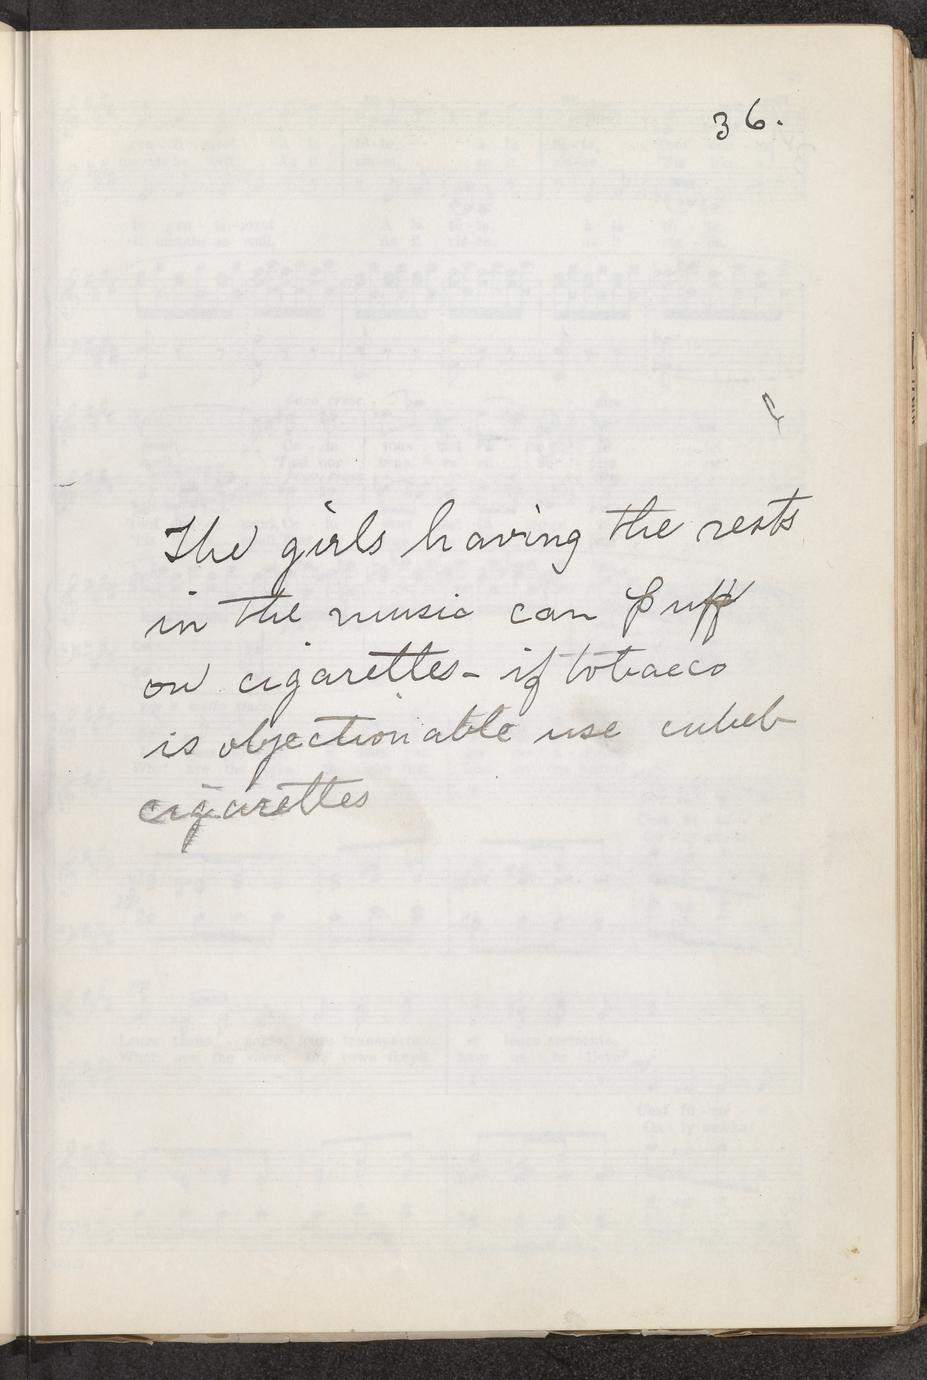 36.
The girls having the rests
in the music can puff
on cigarettes - if tobacco
is objectionable use cubeb
cigarettes